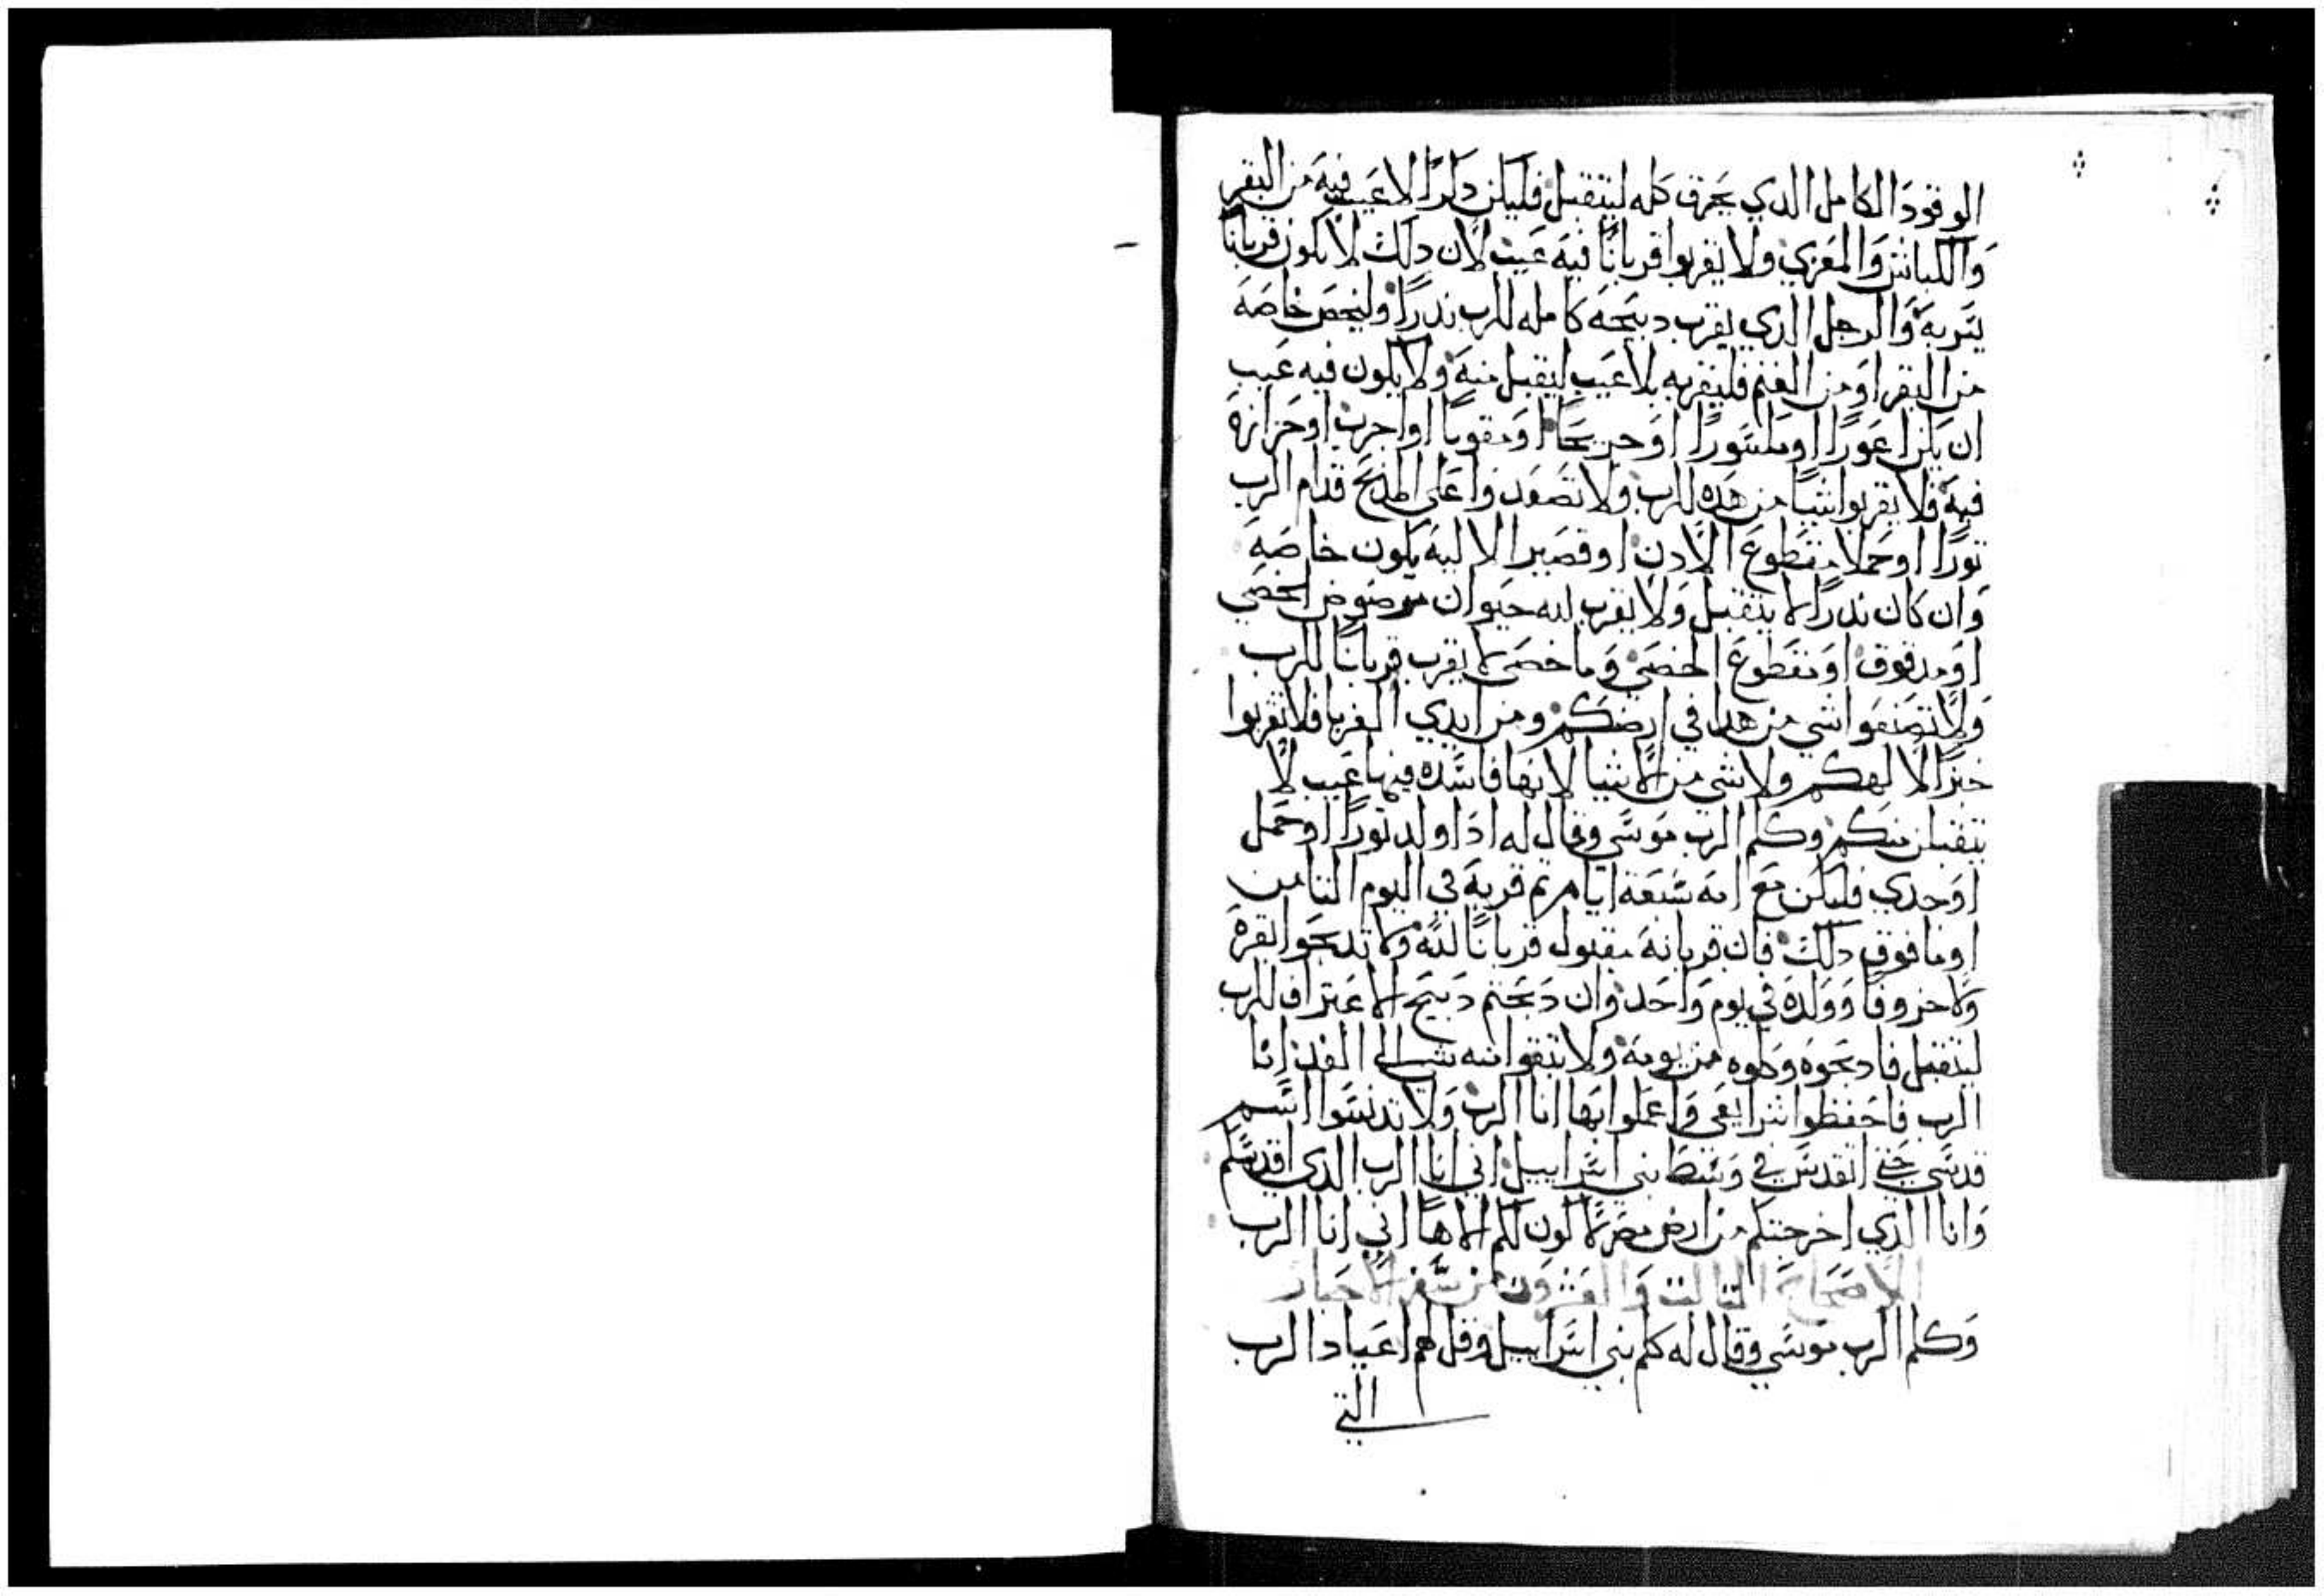 الوقودَ الكامل الدي يحرق كله ليتقبل فليكن دكرًا لا عَيب فيه من البقر
وَالكباش وَالمعَزي ولا يقربوا قربانًا فيه عَيب لان دلك لا يكون قربانًا
يسَر به وَالرجل الدي يقرب دبيحَه كامله للرب ندرًا وليخص خاصَه
من البقر اوَ من الغنم فليقربه بلا عَيب ليقبل منه ولا يكون فيه عَيب
ان يكن اعَورًا او مكسَورًا اوَ جريحًا اوَ او اجرب او حَزازة
فيه فلا يقربوا شيًا من هده للرب ولا تصَعَدوا عَلى المدبح قدام الرب
تورًا او حَملا مقطوعَ الادن او قصَير الاليه يكون خاصَه
وَان كان ندرًا لا يتقبل وَلا يقرب لله حيَوان مرضوض الخصَي
اوَ مدقوق اوَ مقطوعَ الخصَي وَما خصَي لا يقرب قربانًا للرب
وَلا تصَنعَوا شي من هدا في ارضكم ومن ايدي الغربا فلا تقربوا
خبزًا لالهكم ولا شي من الاشيا لانها فاسَده فيها عَيب لا
تتقبل منكم وكلم الرب موسَي وقال له ادَا ولد تورًا او حَمل
اوَ جدي فليكن معَ امه سَبعَة ايام تم قربه في اليوم التامن
او ما فوق دلك فان قربانه مقبول قربانًا لله ولا تدبحَوا بقرة
ولا خروفًا وَولده في يوم وَاحَد وان دَبحَتم دَبيح الاعَتراف للرب
ليتقبل فادبحَوه وَكلوه من يومه ولا تبقوا منه شي الي الغد انا
الرب فاحَفظوا شرايعَي وَاعَملوا بها انا الرب وَلا تدنسَوا اسَم
قدسَي حَتي اتقدسَ في وَسَط بني اسَراييل اني انا الرب الدي اقدسَكم
وَانا الدي اخرجتكم من ارض مصَر لاكون لكم الاهًا اني انا الرب
الاصَحاحَ التالت وَالعَشرَون من سَفر الاحَبار
وَكلم الرب موسَي وقال له كلم بني اسَراييل وقل لهم اعَياد الرب
التي